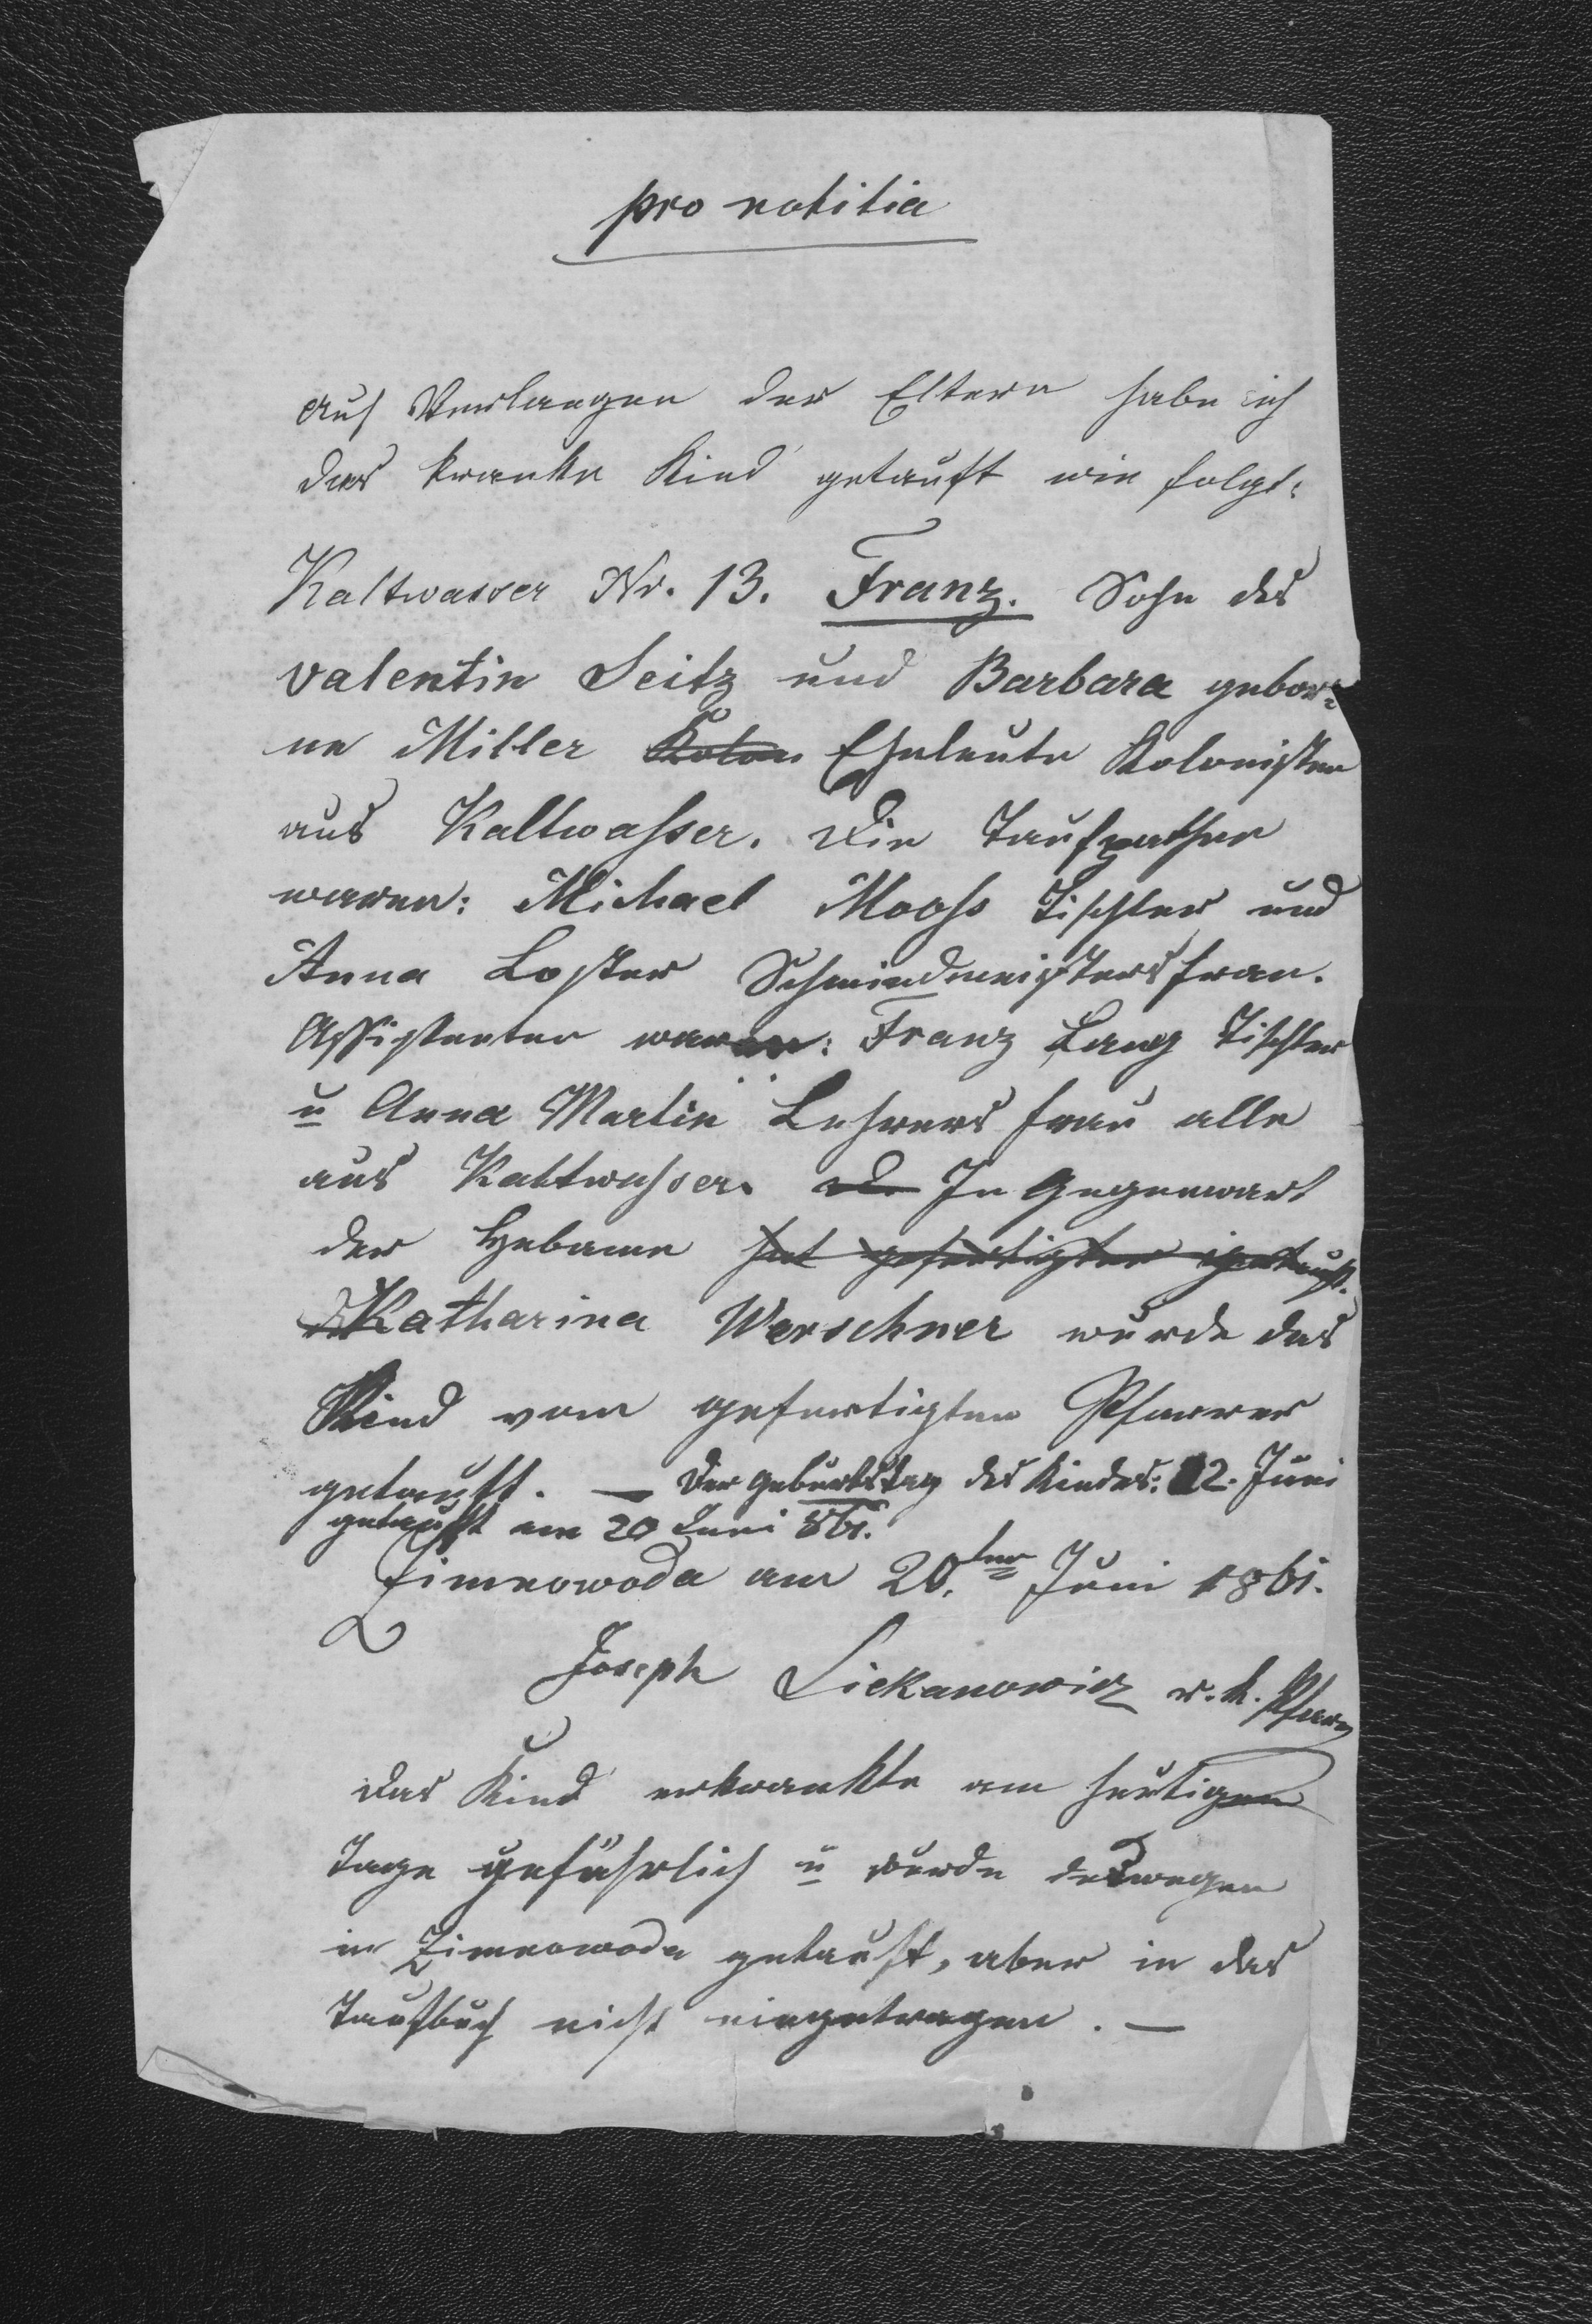 pro notitia
Auf Verlangen der Eltern habe ich
das kranke Kind getauft wie folgt:
Kaltwasser Nr. 13. Franz. Sohn des
Valentin Seitz und Barbara gebor-
ne Miller Kolon Eheleute Kolonisten
aus Kaltwasser. Die Taufpathen
waren: Michael Mooss Tischler und
Anna Loster Schmiedmeistersfrau.
Assistenten waren: Franz Lang Tischler
u Anna Martin Lehrers frau alle
aus Kaltwasser. In Gegenwart
der Hebame hat gefertigter getauft.
Katharina Werschner wurde das
Kind vom gefertigten Pfarrer
getauft. — Der Geburtstag des Kindes: 12. Juni
getauft am 20 Juni 861.
Zimnowoda am 20. ten Juni 1861.
Joseph Lickanowicz r. k. Pfarr
Das Kind erkrankte am heutigen
Tage gefährlich u wurde deswegen
in Zimnowoda getauft, aber in das
Taufbuch nicht eingetragen. —